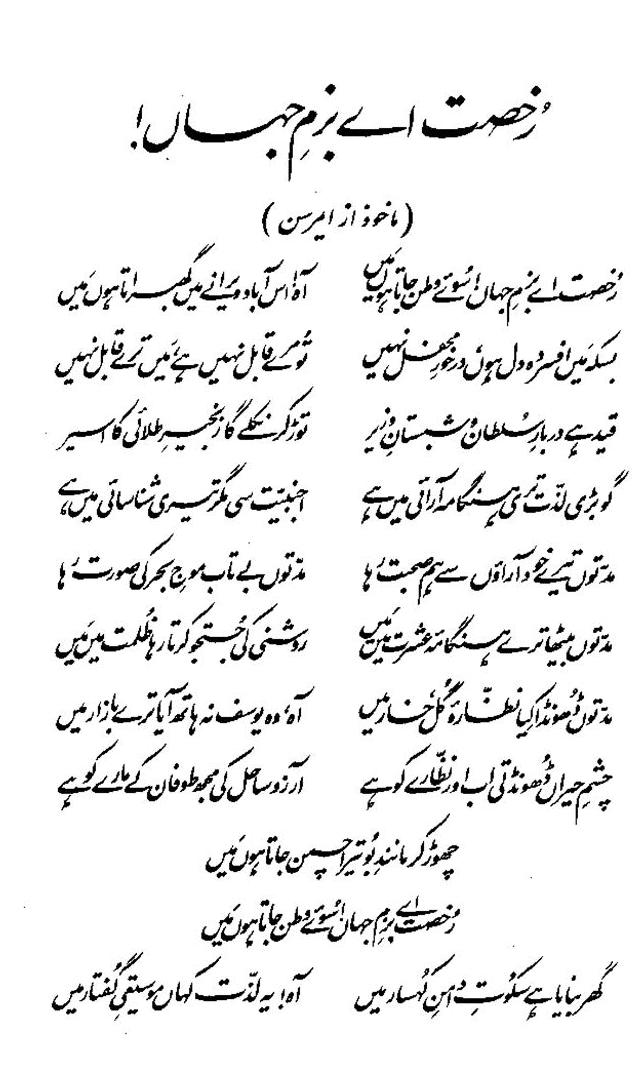 رُخصت اے بزمِ جہاں!
(ماخوذ از ایمرسن)
رُخصت اے بزمِ جہاں! سُوئے وطن جاتا ہوں مَیں آہ! اس آباد ویرانے میں گھبراتا ہوں مَیں
بسکہ مَیں افسردہ دل ہوں، درخورِ محفل نہیں تُو مرے قابل نہیں ہے، مَیں ترے قابل نہیں
قید ہے دربارِ سُلطان و شبستانِ وزیر توڑ کر نکلے گا زنجیرِ طلائی کا اسیر
گو بڑی لذّت تری ہنگامہ آرائی میں ہے اجنبیّت سی مگر تیری شناسائی میں ہے
مدّتوں تیرے خود آراؤں سے ہم صحبت رہا مدّتوں بے تاب موجِ بحر کی صورت رہا
مدّتوں بیٹھا ترے ہنگامۂ عشرت میں مَیں روشنی کی جُستجو کرتا رہا ظُلمت میں مَیں
مدّتوں ڈھونڈا کیا نظّارۂ گُل، خار میں آہ، وہ یوسف نہ ہاتھ آیا ترے بازار میں
چشمِ حیراں ڈھونڈتی اب اور نظّارے کو ہے آرزو ساحل کی مجھ طوفان کے مارے کو ہے
چھوڑ کر مانندِ بُو تیرا چمن جاتا ہوں مَیں
رُخصت اے بزمِ جہاں! سُوئے وطن جاتا ہوں مَیں
گھر بنایا ہے سکُوتِ دامنِ کُہسار میں آہ! یہ لذّت کہاں موسیقیِ گُفتار میں